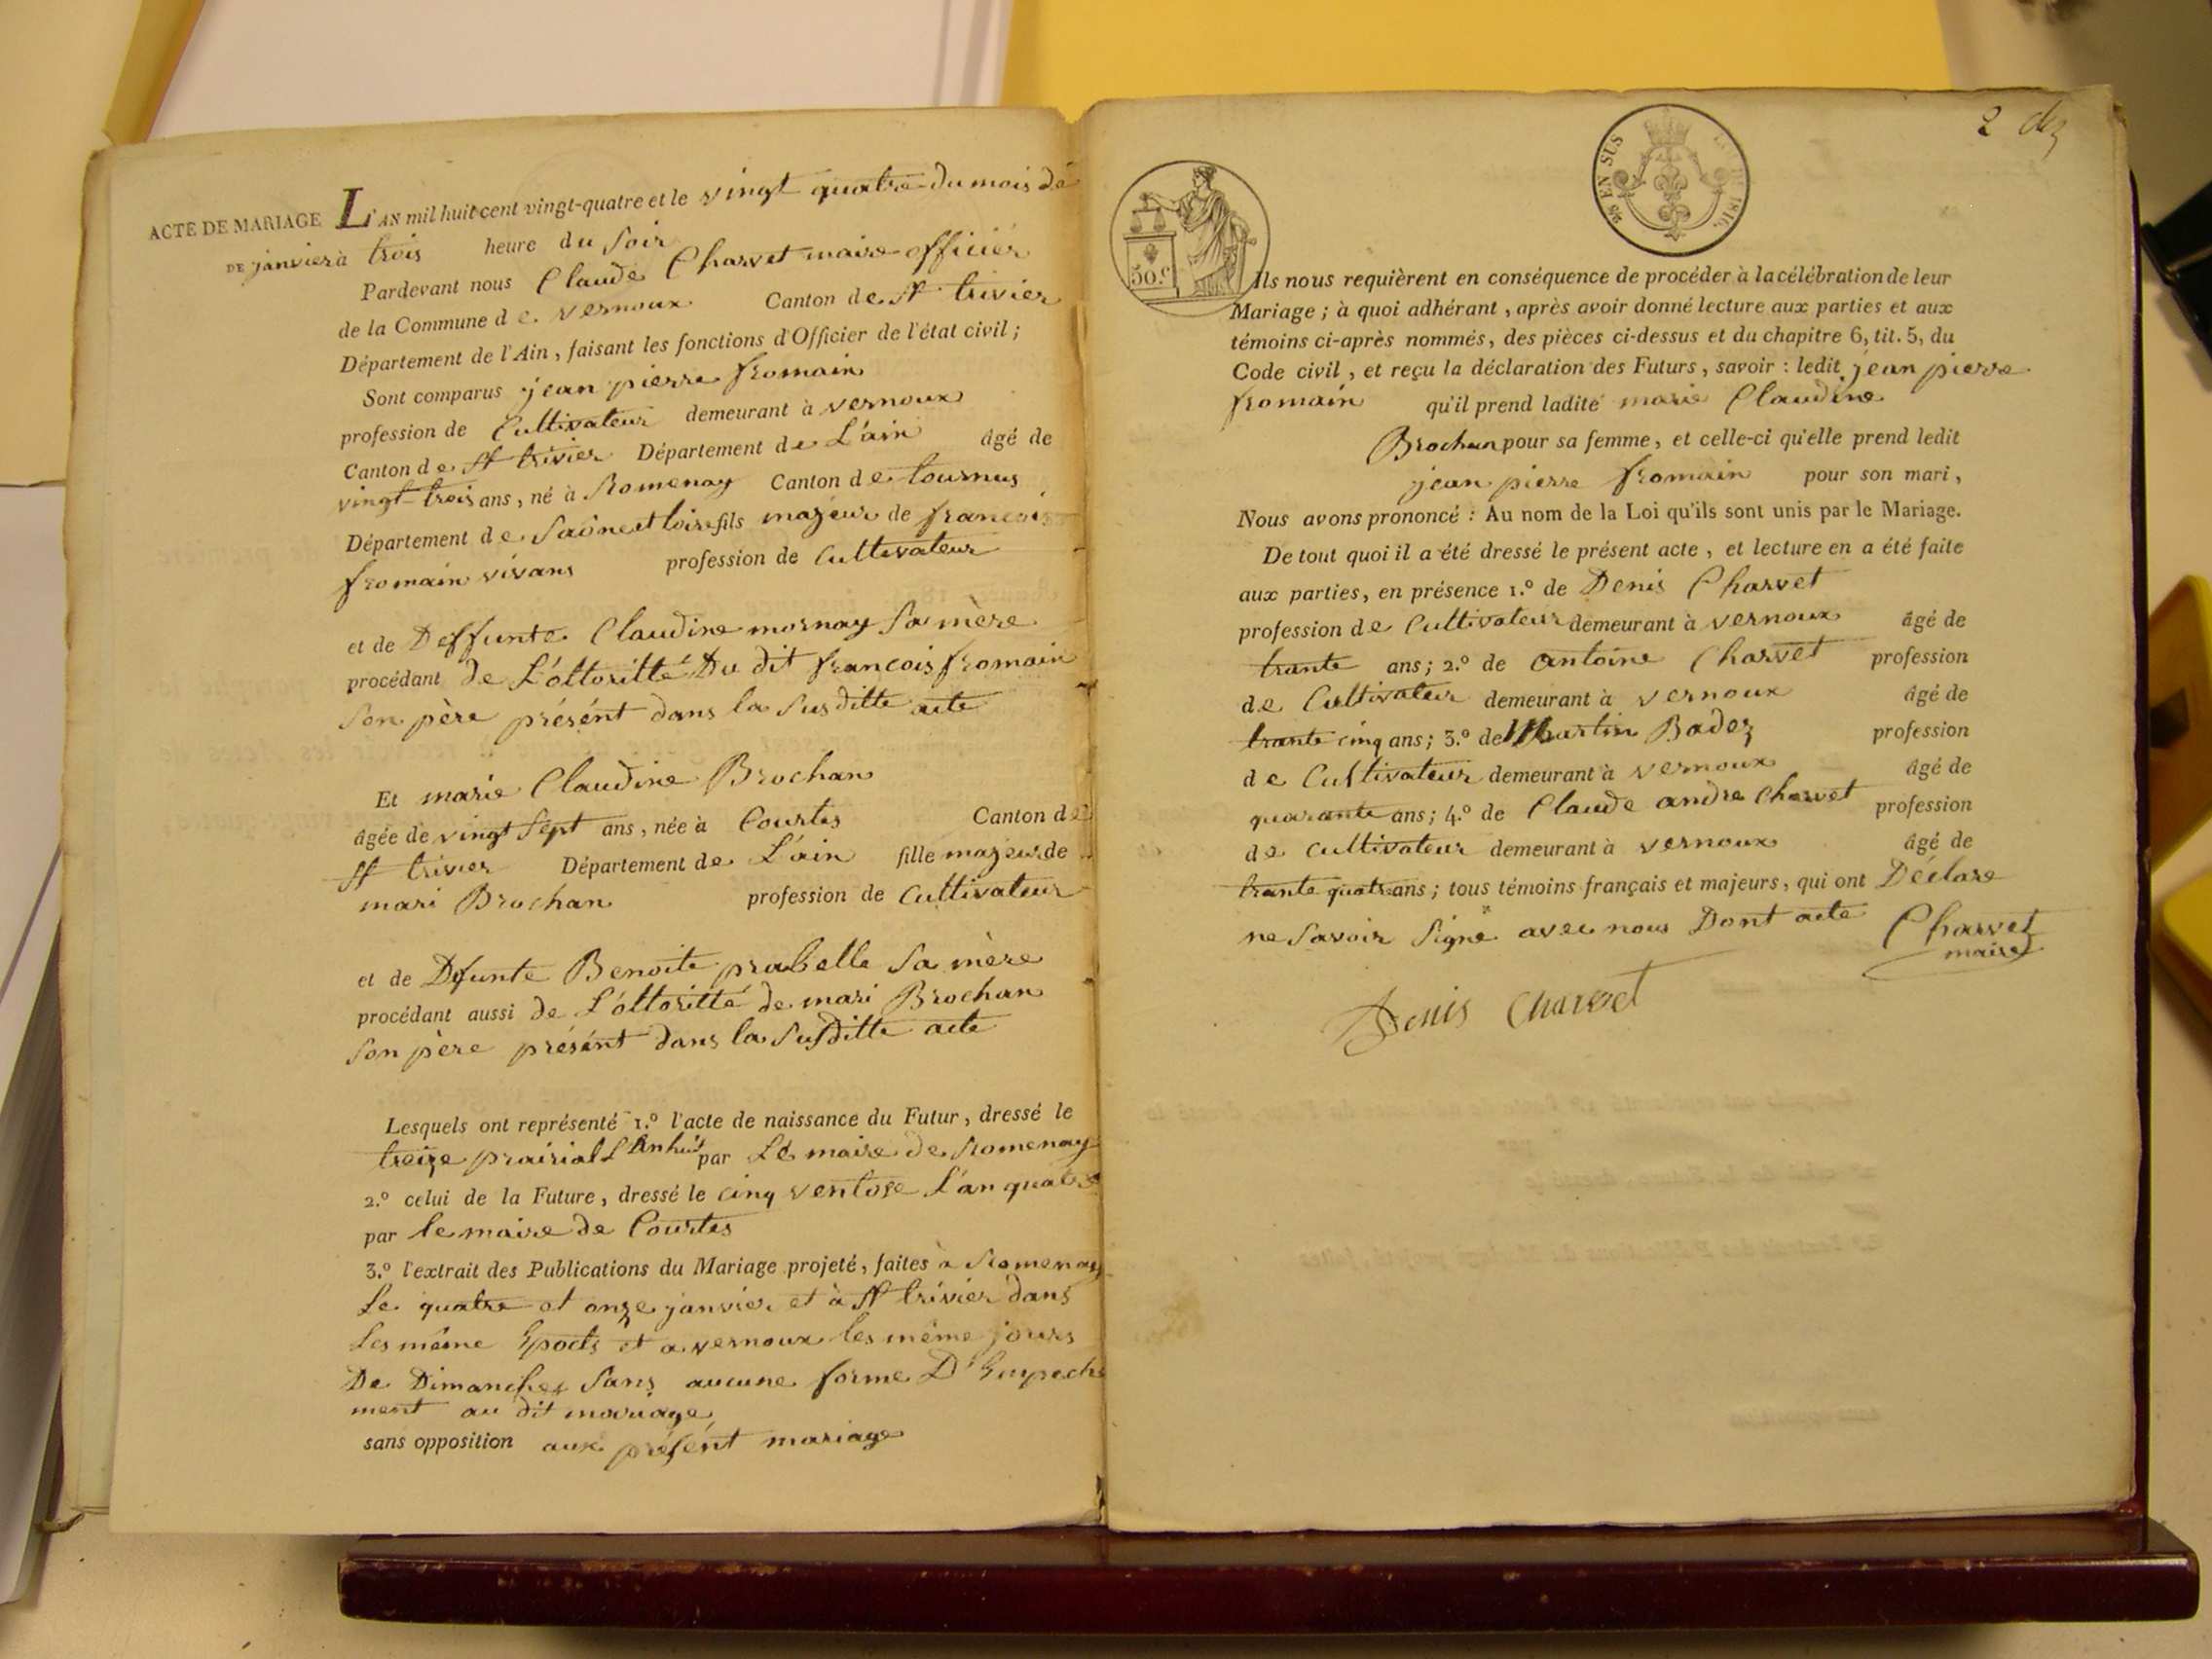 ACTE DE MARIAGE L'AN mil huit cent vingt-quatre et le vingt quatre du mois de
DE janvier à trois heure du soir
Pardevant nous Claude Charvet maire officier
de la Commune de vernoux Canton de St trivier
Département de l'Ain, faisant les fonctions d'Officier de l'état civil;
Sont comparus jean pierre fromain
profession de Cultivateur demeurant à vernoux
Canton de St trivier Département de L'ain âgé de
vingt trois ans, né à Romenay Canton de tournus
Département de Saône et loire fils majeur de francois
fromain vivans profession de Cultivateur
et de Deffunte Claudine mornay Sa mère
procédant de L'ottoritté Du dit francois fromain
Son père présént dans la Susditte acte
Et marie Claudine Brochan
âgée de vingt Sept ans, née à Courtes Canton de
St trivier Département de L'ain fille majeur de
mari Brochan profession de Cultivateur
et de Dfunte Benoite prabelle Sa mère
procédant aussi de L'ottoritté de mari Brochan
Son père présént dans la Susditte acte
Lesquels ont représenté 1.º l'acte de naissance du Futur, dressé le
treize prairial L'An huit par Le maire de Romenay
2.º celui de la Future, dressé le cinq ventose L'an quatre
par le maire de Courtes
3.º l'extrait des Publications du Mariage projeté, faites à Romenay
Le quatre et onze janvier et à St trivier dans
Les même Epocts et a vernoux les même jours
De Dimanches Sans aucune forme D'Empeche
ment au dit mariage
sans opposition aux présént mariage
2 
28 EN SUS 1816.
50.c
Ils nous requièrent en conséquence de procéder à la célébration de leur
Mariage; à quoi adhérant, après avoir donné lecture aux parties et aux
témoins ci-après nommés, des pièces ci-dessus et du chapitre 6, tit. 5, du
Code civil, et reçu la déclaration des Futurs, savoir: ledit jean pierre
fromain qu'il prend ladite marie Claudine
Brochan pour sa femme, et celle-ci qu'elle prend ledit
jean pierre fromain pour son mari,
Nous avons prononcé: Au nom de la Loi qu'ils sont unis par le Mariage.
De tout quoi il a été dressé le présent acte, et lecture en a été faite
aux parties, en présence 1.º de Denis Charvet
profession de Cultivateur demeurant à vernoux âgé de
trante ans; 2.º de antoine Charvet profession
de Cultivateur demeurant à vernoux âgé de
trante cinq ans; 3.º de Martin Badez profession
de Cultivateur demeurant à vernoux âgé de
quarante ans; 4.º de Claude andre Charvet profession
de Cultivateur demeurant à vernoux âgé de
trante quatre ans; tous témoins français et majeurs, qui ont Déclare
ne Savoir Signe avec nous Dont acte Charvet
maire
Denis Charvet